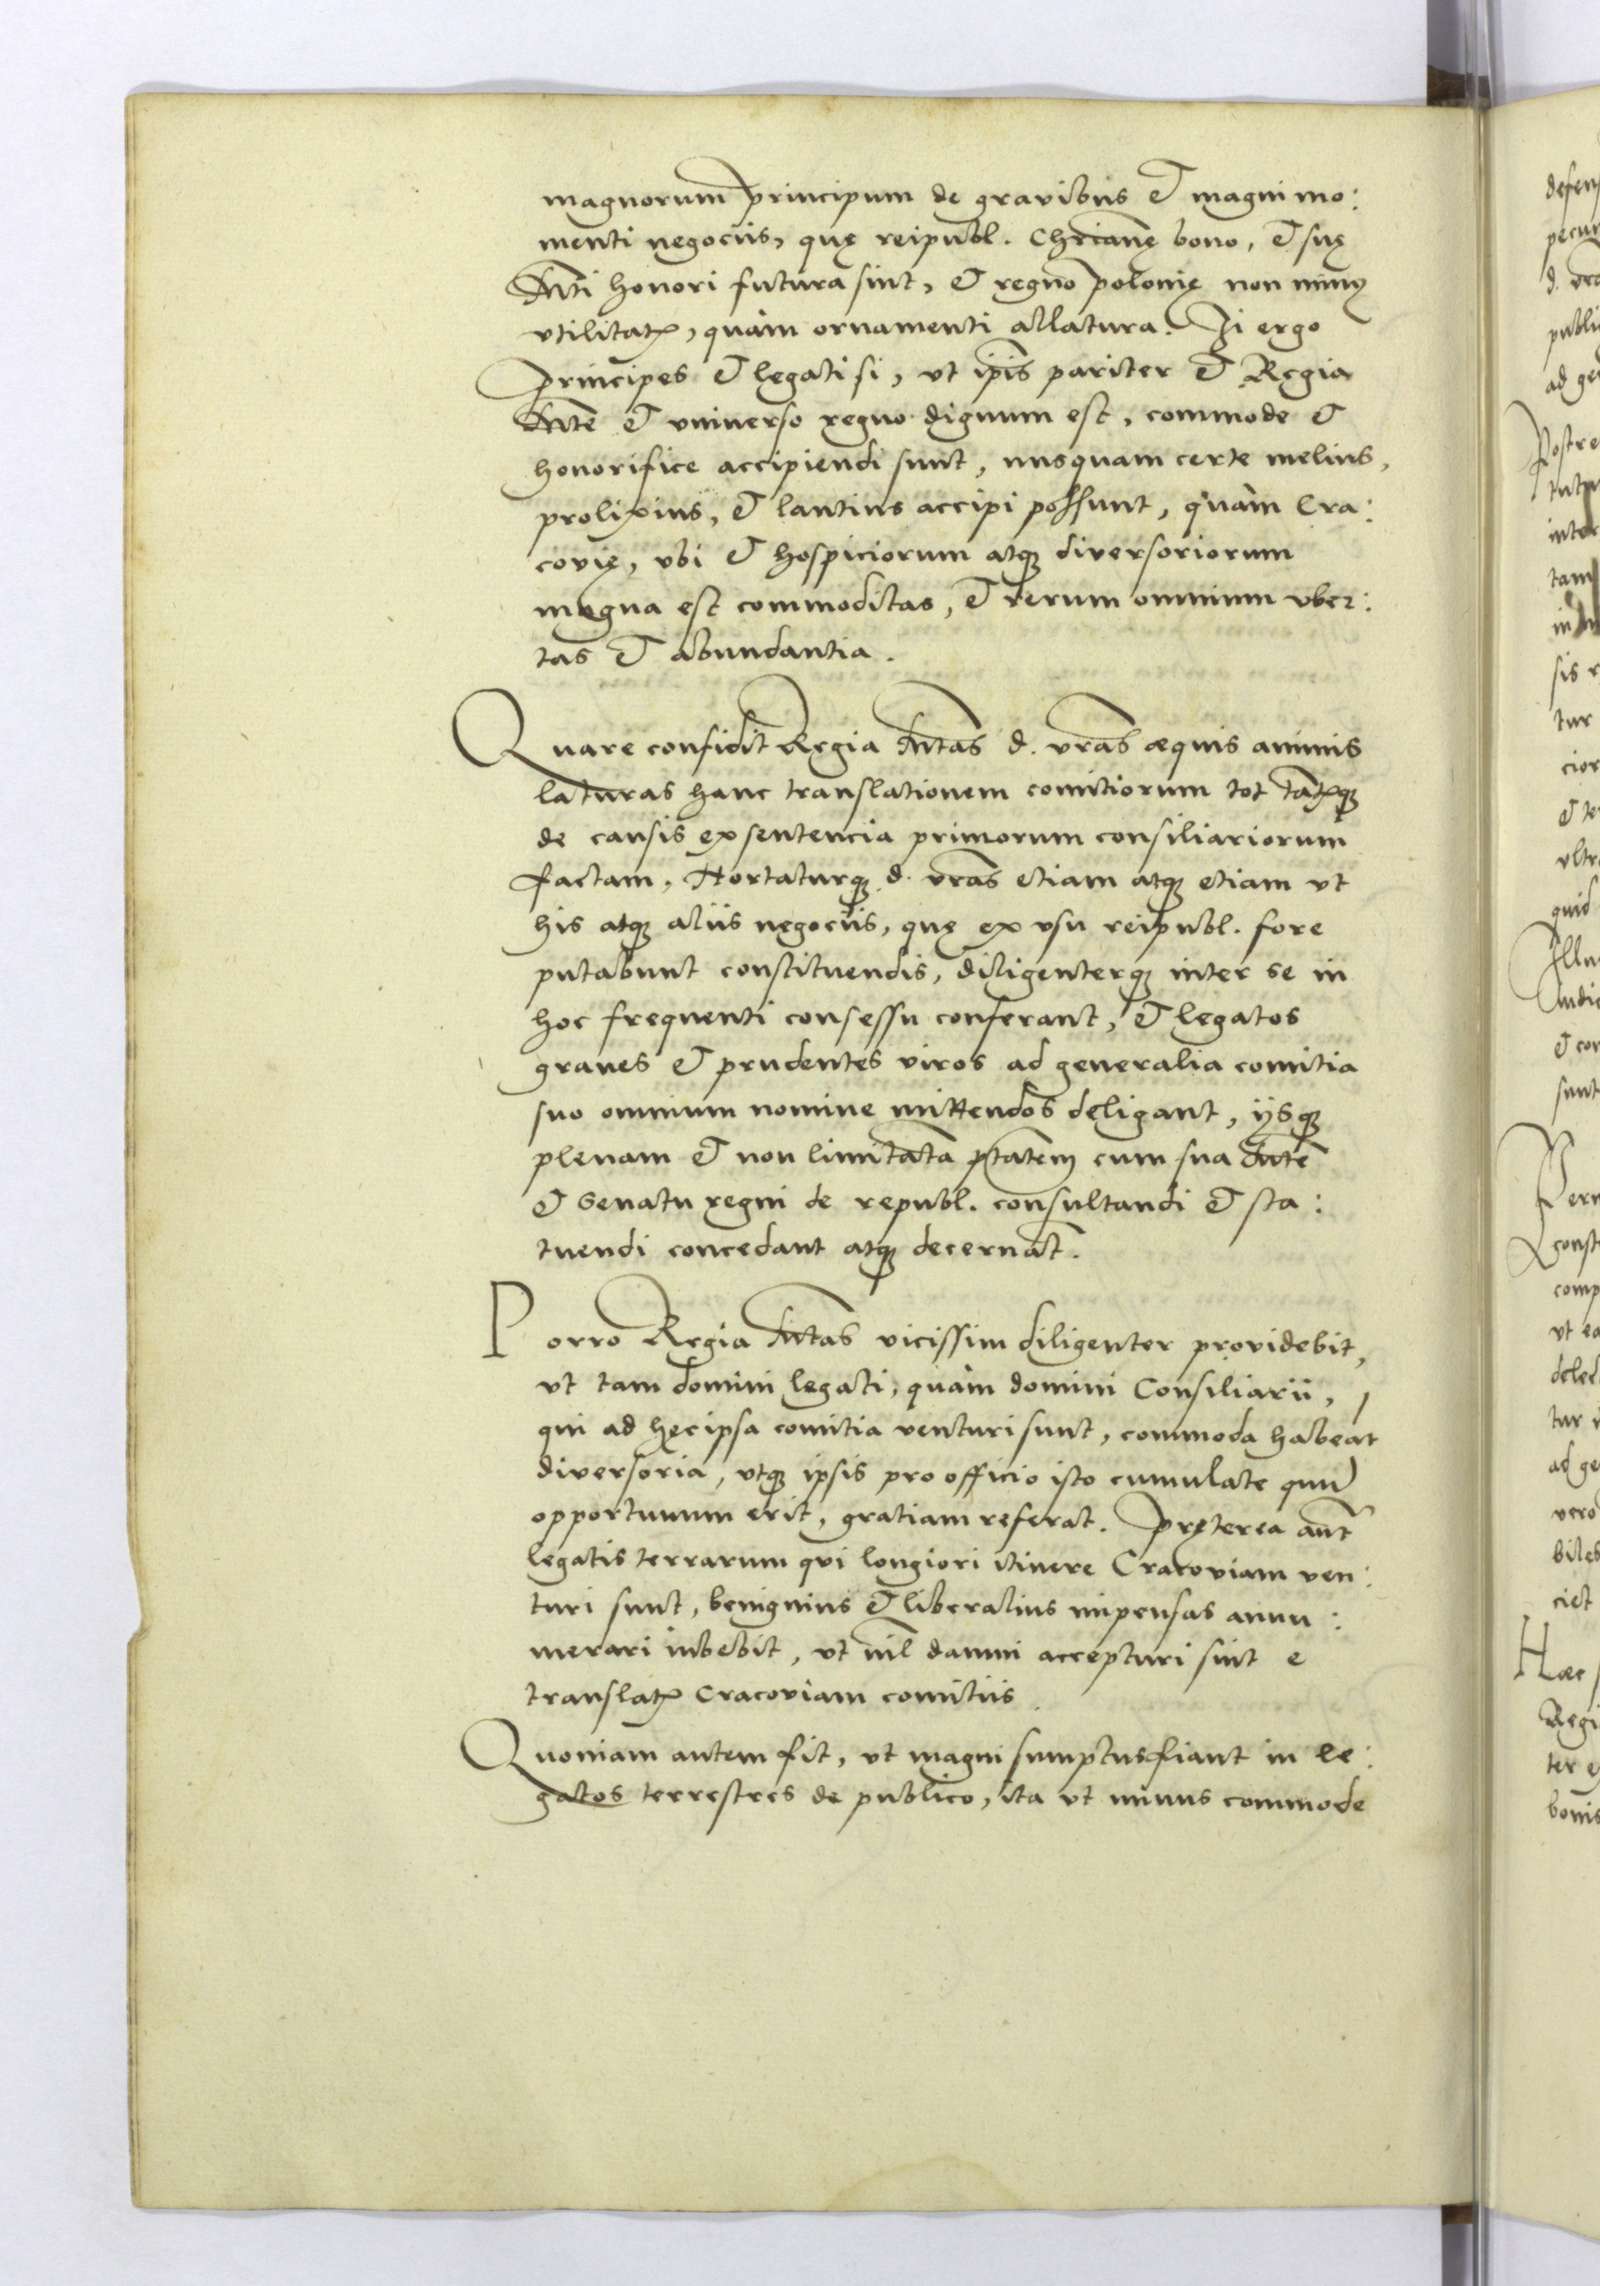 magnorum principum de gravibus et magni mo:
menti negociis, quę reipubl. Chrianę bono, et suę
Mti honori futura sint, et regno polonię non minus
utilitatis, quàm ornamenti allatura. Ii ergo
principes et legati si, ut ipsis pariter et Regia
Mte et universo regno dignum est, commode et
honorifice accipiendi sunt, nusquam certe melius,
prolixius, et lautius accipi possunt, quàm Cra:
covię, ubi et hospiciorum atq diversoriorum
magna est commoditas, et rerum omnium uber:
tas et abundantia.
Quare confidit Regia Mtas d. vras æquis animis
laturas hanc translationem comitiorum tot tatisq
de causis ex sentencia primorum consiliariorum
factam, Hortaturq d. vras etiam atq etiam ut
his atq aliis negociis, quę ex usu reipubl. fore
putabunt constituendis, diligenterq inter se in
hoc frequenti consessu conferant, et legatos
graves et prudentes viros ad generalia comitia
suo omnium nomine mittendos deligant, ijsq
plenam et non limitata ptatem cum sua Mte
et Senatu regni de republ. consultandi et sta:
tuendi concedant atq decernat.
Porro Regia Mtas vicissim diligenter providebit,
ut tam domini legati, quàm domini Consiliarii,
qui ad hęc ipsa comitia venturi sunt, commoda habeat
diversoria, utq ipsis pro officio isto cumulate quu
opportunum erit, gratiam referat. Pręterea aut
legatis terrarum qvi longiori itinere Cracoviam ven:
turi sunt, benignius et liberalius impensas annu:
merari iubebit, ut nil damni accepturi sint e
translatis Cracoviam comitiis
Quoniam autem fit, ut magni sumptus fiant in le:
gatos terrestres de publico, ita ut minus commode